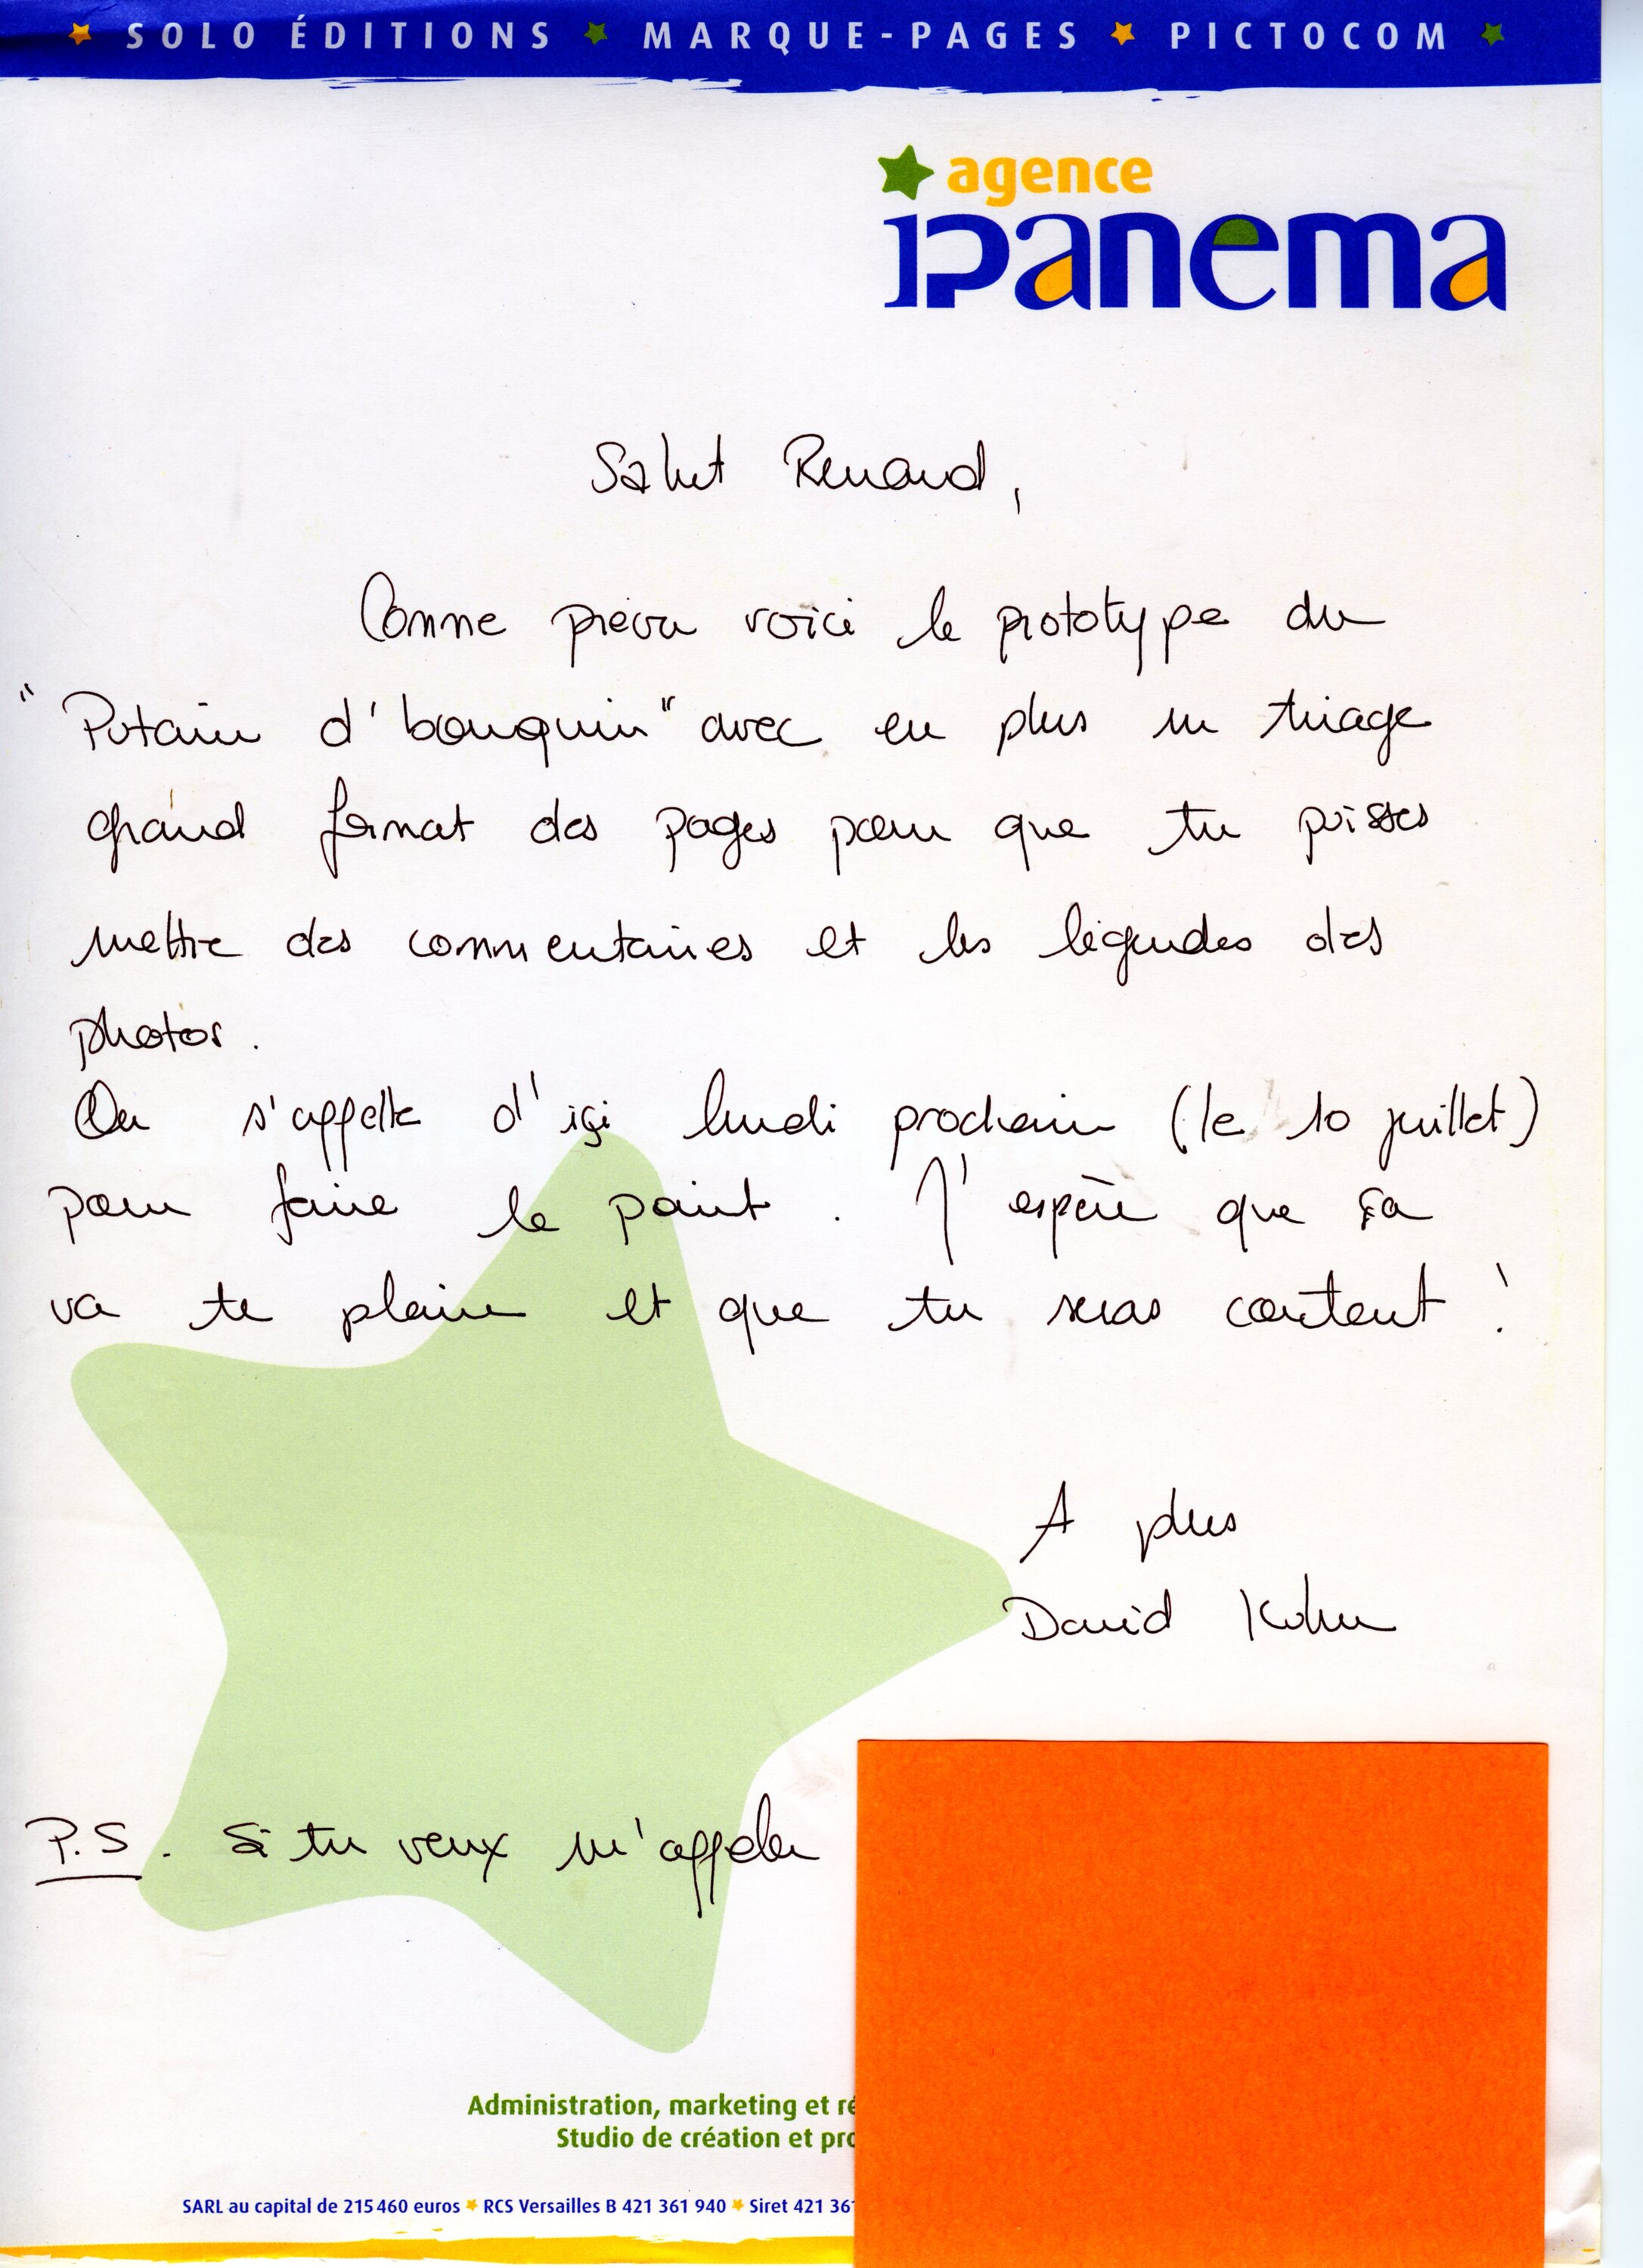 SOLO ÉDITIONS MARQUE-PAGES PICTOCOM
agence
ipanema
Salut Renaud,
Comme prévu voici le prototype du
"Putain d'bouquin" avec en plus un tirage
grand format des pages pour que tu puisses
mettre des commentaires et les légendes des
photos.
On s'appelle d'içi lundi prochain (le 10 juillet)
pour faire le point. J'espère que ça
va te plaire et que tu seras content !
A plus
David Kuhn
P.S. Si tu veux m'appeler
Administration, marketing et ré
Studio de création et pro
SARL au capital de 215 460 euros RCS Versailles B 421 361 940 Siret 421 361